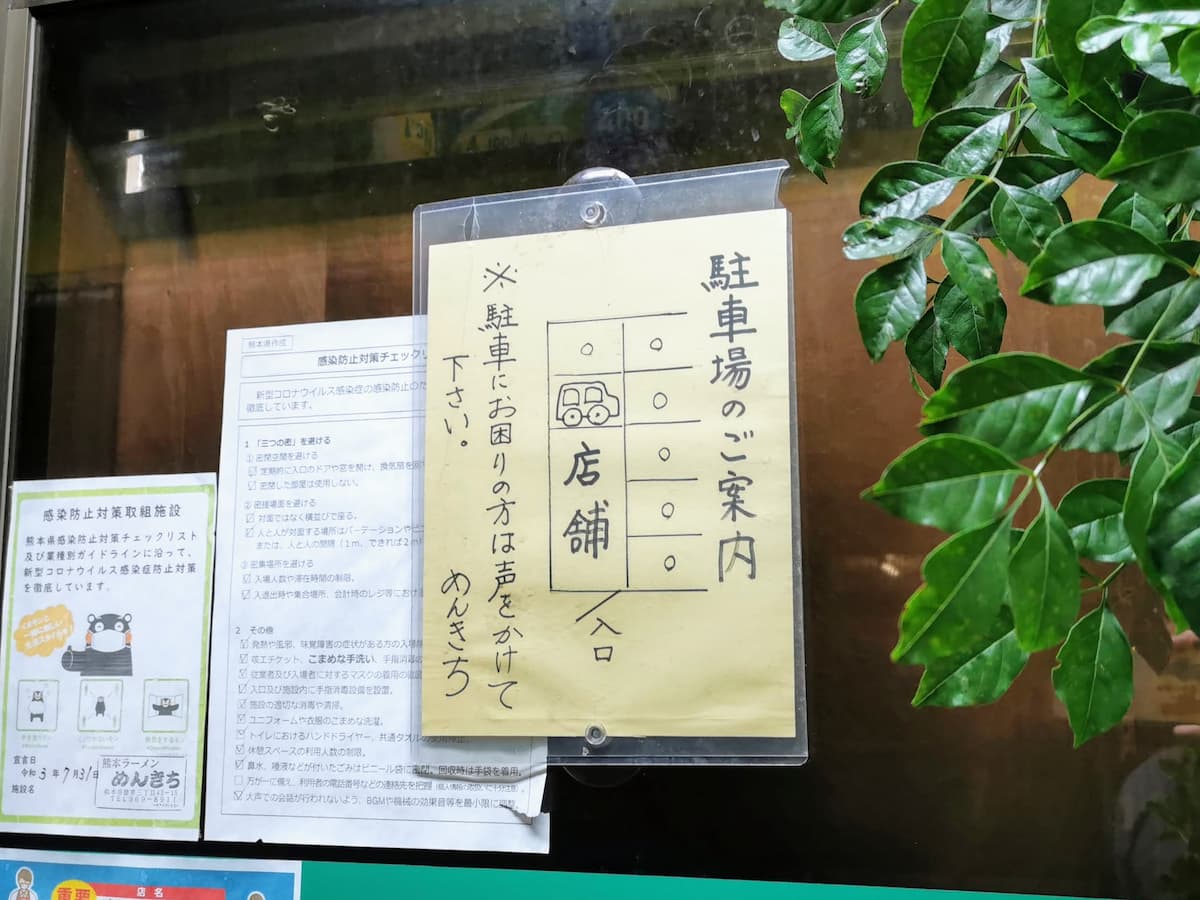 駐車場のご案内
店舗
入口
※駐車にお困りの方は声をかけて
下さい。
めんきち
熊本県作成
感染防止対策チェックリ
新型コロナウイルス感染症の感染防止のた
徹底しています。
1 「三つの密」を避ける
① 密閉空間を避ける
定期的に入口のドアや窓を開け、換気扇を回
密閉した部屋は使用しない。
② 密接場面を避ける
対面ではなく横並びで座る。
人と人が対面する場所はパーテーションやビニ
または、人と人の間隔（1m、できれば2m）
③ 密集場所を避ける
入場人数や滞在時間の制限。
入退出時や集合場所、会計時のレジ等におけ
2 その他
発熱や風邪、味覚障害の症状がある方の入場
咳エチケット、こまめな手洗い、手指消毒の
従業者及び入場者に対するマスクの着用の
入口及び施設内に手指消毒設備を設置。
施設の適切な消毒や清掃。
ユニフォームや衣服のこまめな洗濯。
トイレにおけるハンドドライヤー、共通タオルの
休憩スペースの利用人数の制限。
鼻水、唾液などが付いたごみはビニール袋に密閉、回収時は手袋を着用。
万が一に備え、利用者の電話番号などの連絡先を把握
大声での会話が行われないよう、BGMや機械の効果音等を最小限に調整
感染防止対策取組施設
熊本県感染防止対策チェックリスト
及び業種別ガイドラインに沿って、
新型コロナウイルス感染症防止対策
を徹底しています。
宣言日
令和3年7月31日
施設名
熊本ラーメン
めんきち
TEL369-8911
重要
店名